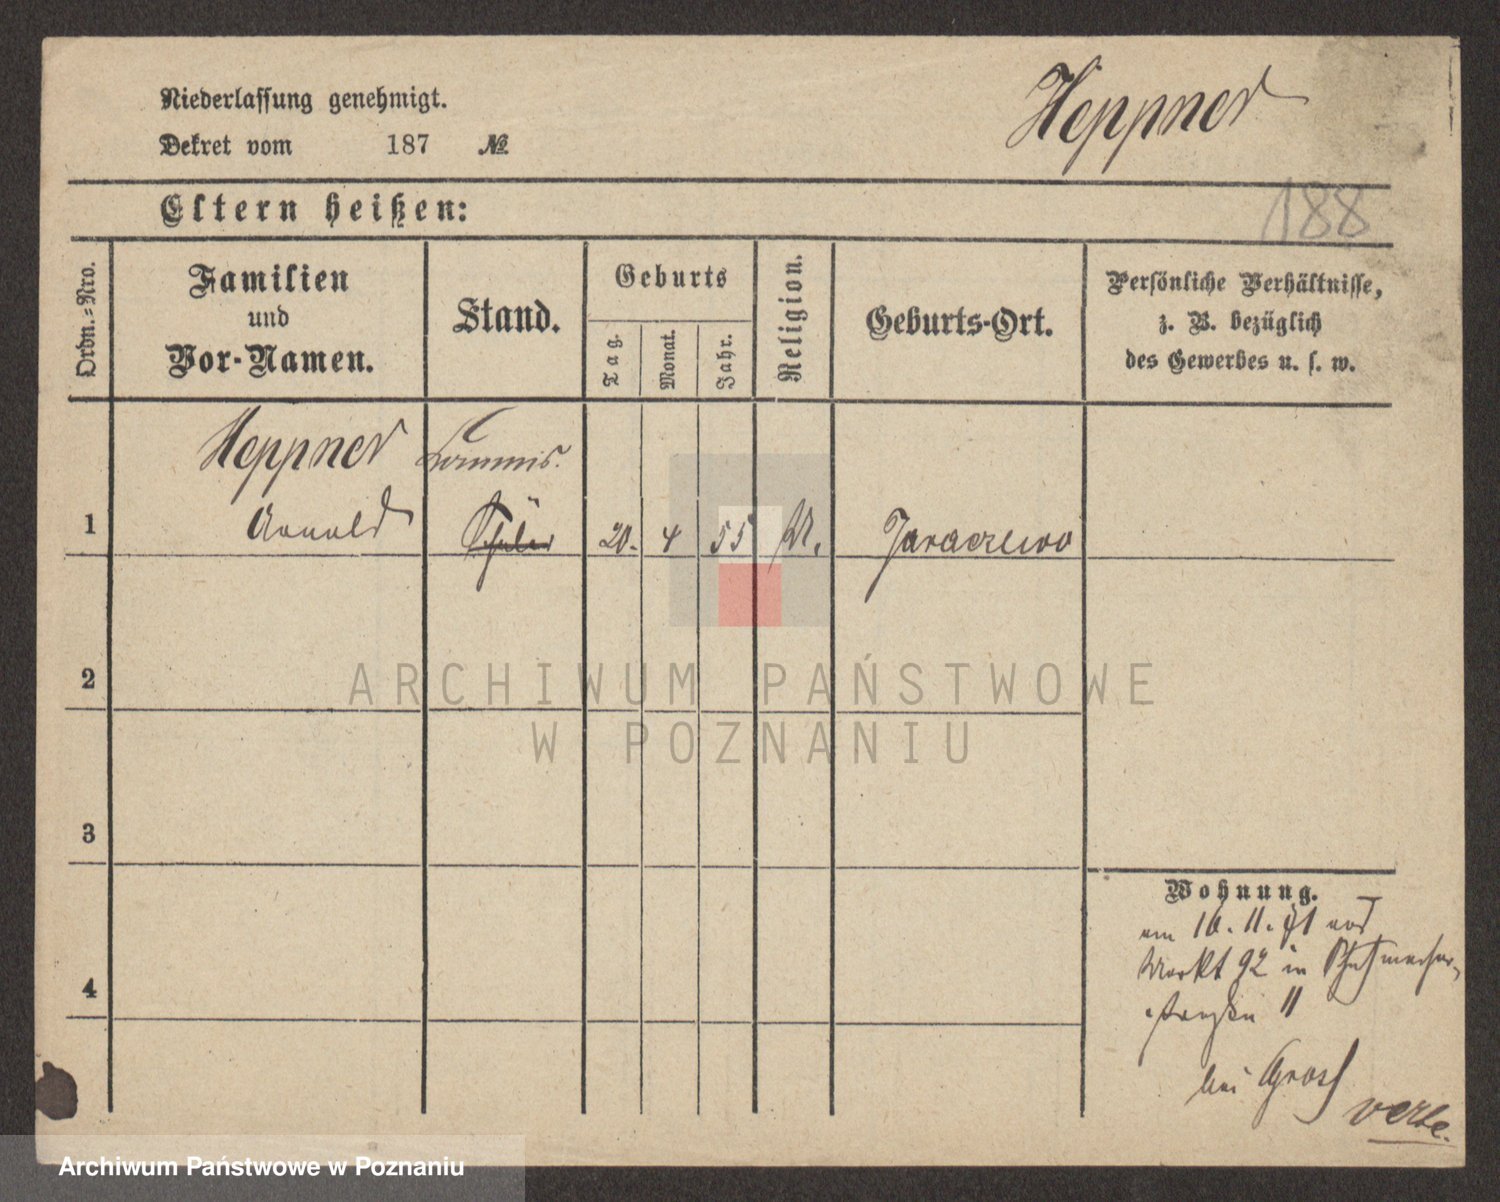 Niederlassung genehmigt.
Heppner
Dekret vom 187 №
188
Eltern heißen:
Ordn.-Nro.
Familien und Vor-Namen.
Stand.
Geburts
Tag.
Monat.
Jahr.
Religion.
Geburts-Ort.
Persönliche Verhältnisse,
z. B. bezüglich
des Gewerbes u. s. w.
Heppner Commis.
1 Arnold Schüler 20. 4 55 M. Jaraczewo
2
ARCHIWUM PAŃSTWOWE
W POZNANIU
3
Wohnung.
am 16. 11. 71 von
Markt 92 in Schuhmacher-
straße 11
4
bei Grosz
verte.
Archiwum Państwowe w Poznaniu